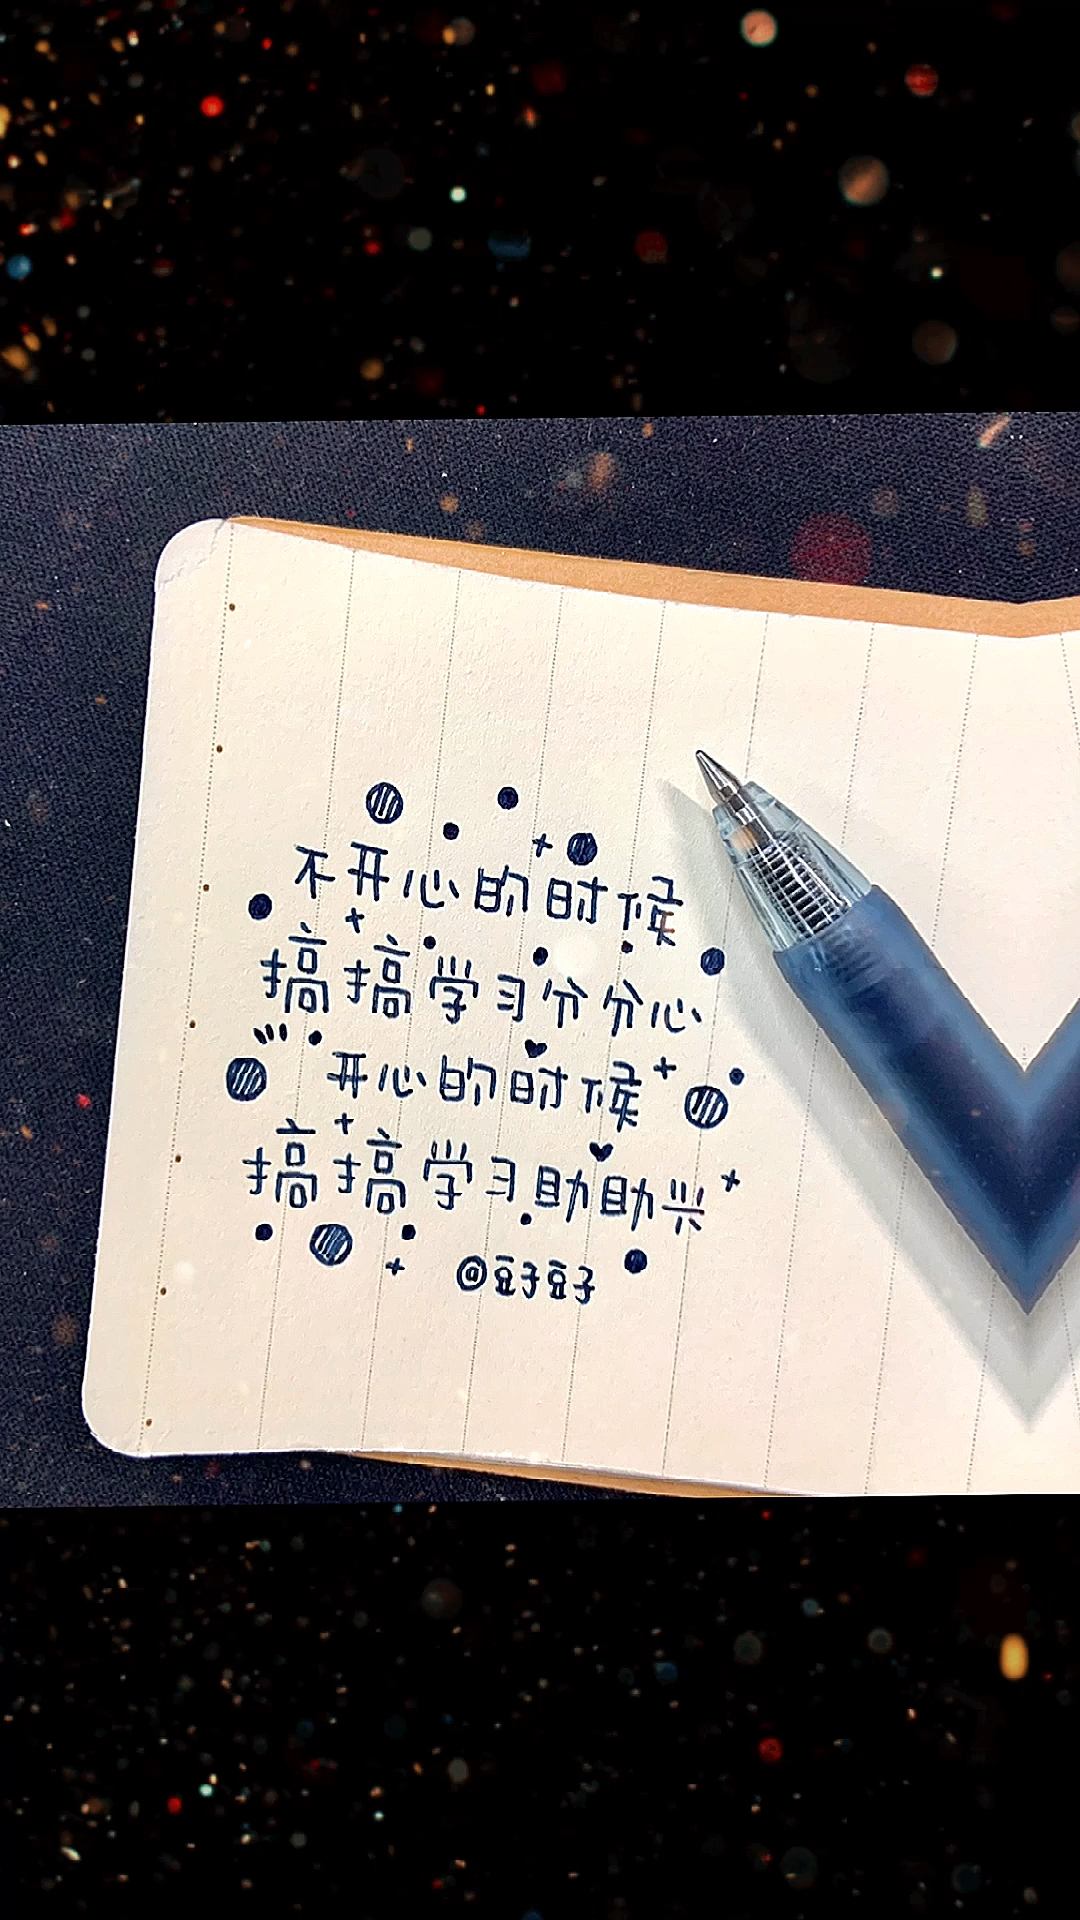 不开心的时候
搞搞学习分分心
开心的时候
搞搞学习助助兴
@豆子豆子